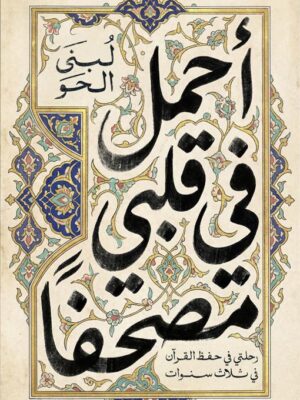 لُبنَى
الحَو
أحمل
في قلبي
مصحفًا
رحلتي في حفظ القرآن
في ثلاث سنوات